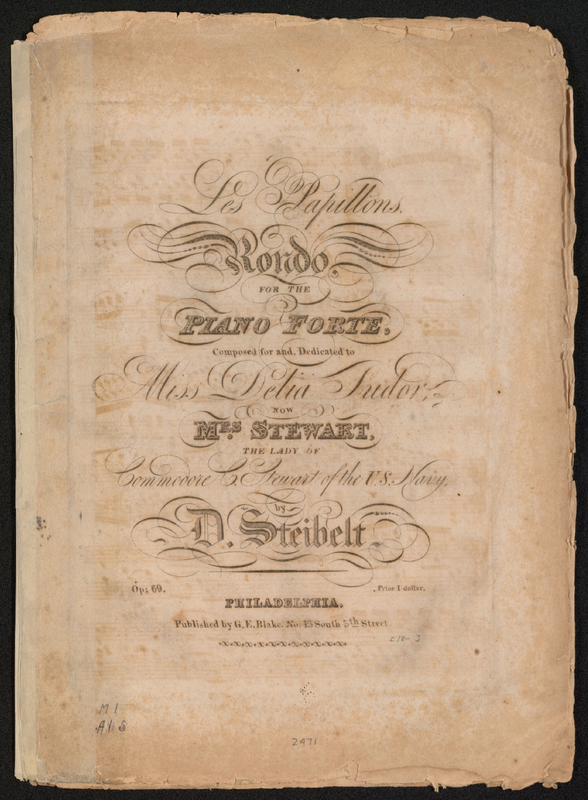 Les Papillons.
Rondo,
FOR THE
PIANO FORTE,
Composed for and, Dedicated to
Miss Delia Tudor,
NOW
MRS STEWART,
THE LADY OF
Commodore C Stewart of the U.S. Navy,
by
D. Steibelt.
Op: 69.
Price 1 dollar.
PHILADELPHIA,
Published by G. E. Blake. No. 13 South 5th Street
M 1
A1 S
2471